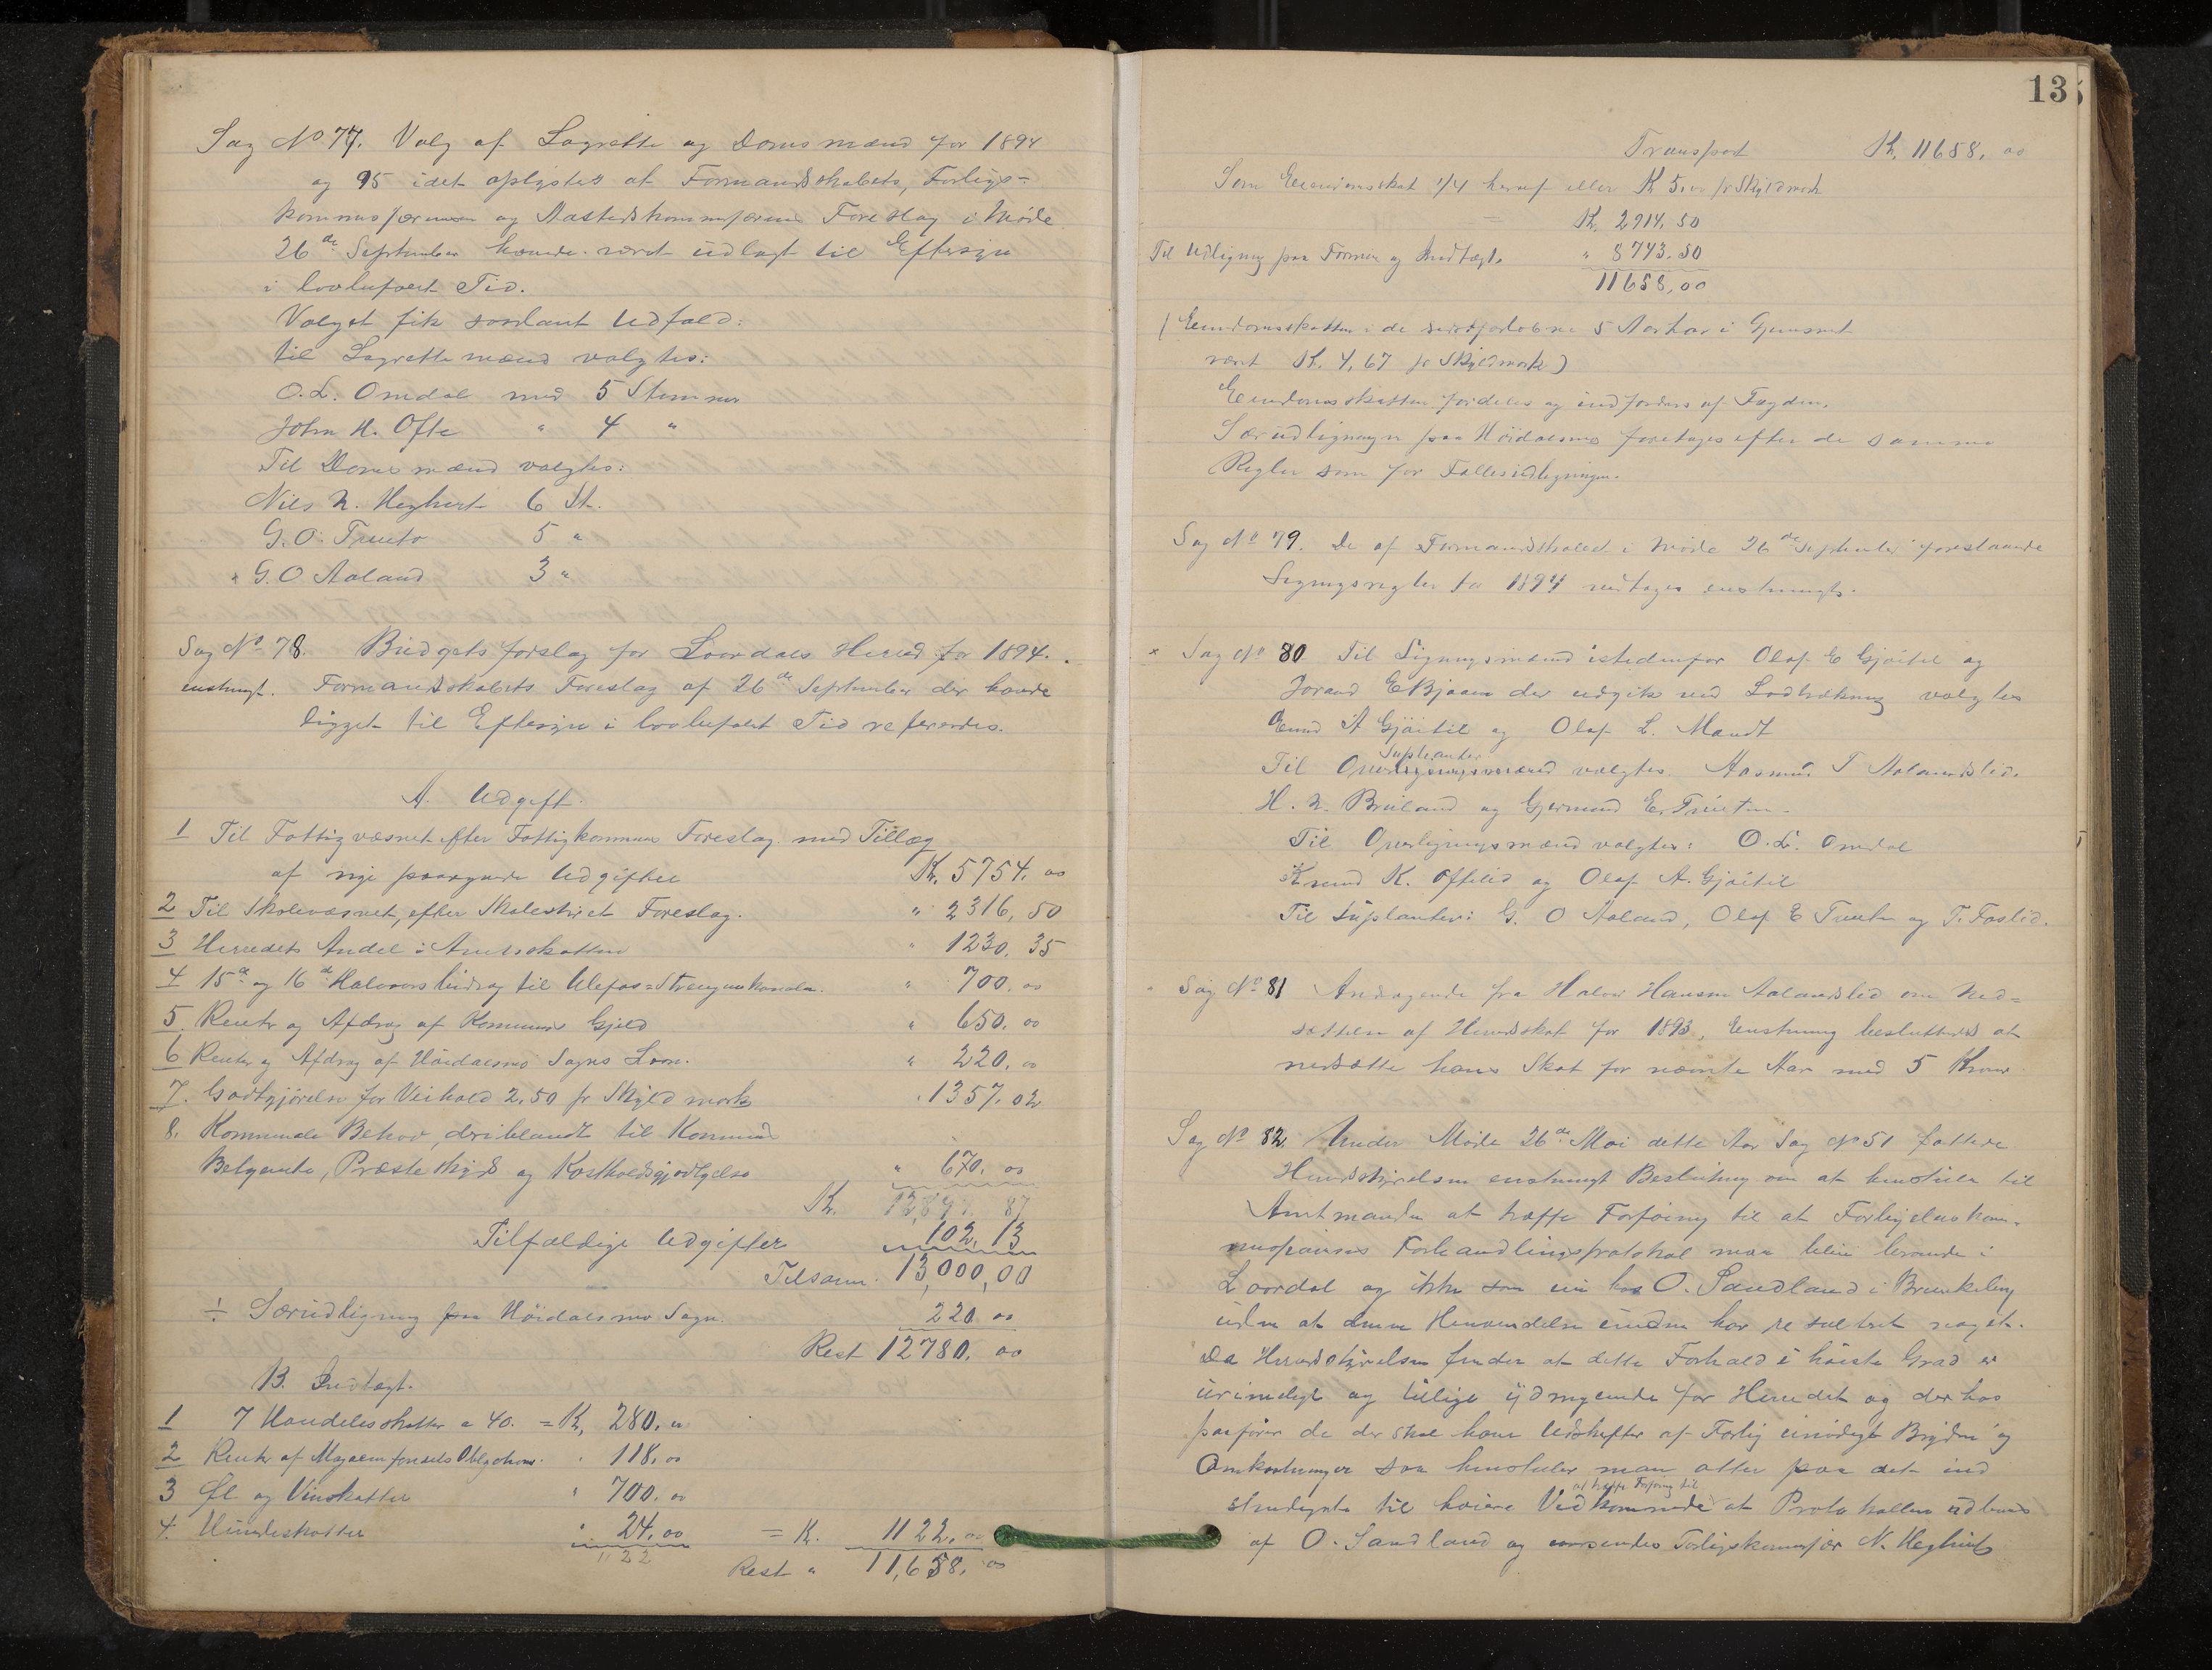 Sag No 77. Valg af Lagrette og Domsmænd for 1894
og 95 idet oplystes at Formandskabets, Forligs-
kommisærerne og Aastedskommisærerne Foreslag i Møde
26de September havde været udlagt til Eftersyn
i lovbefalt Tid.
Valget fik saadant Udfald:
til Lagrettemænd valgtes:
O. L. Omdal med 5 Stemmer
John H. Ofte " 4 "
Til Domsmænd valgtes:
Nils N. Heghert 6 St.
G. O. Trueto 5 "
G. O. Aaland 3 "
Sag No 78. Budgets forslag for Laardals Herred for 1894.
enstemgt. Formandskabets Foreslag af 26de September der havde
ligget til Eftersyn i lovbefalet Tid refereredes.
A. Udgift.
1 Til Fattigvæsnet efter Fattigkommiss Foreslag med Tillæg
af nye paaregnede Udgifter Kr. 5754. 00
2 Til Skolevæsnet, efter Skolestyret Foreslag. " 2316, 50
3 Herredets Andel i Amtsskatten " 1230. 35
4 15de og 16de Halvaarsbidrag til Ulefos-Strengenkanalen. " 700. 00
5. Renter og Afdrag af Kommunens Gjæld " 650. 00
6 Renter og Afdrag af Høidalsmo Sogns Laan. " 220. 00
7. Godtgjørelse for Veihold 2,50 pr Skyldmark " 1357. 02
8. Kommunale Behov, deriblandt til Kommune
Betjente, Præsteskyds og Kostholdsgodtgjørelse " 670. 00
Kr. 12,897. 87
Tilfældige Udgifter 102. 13
Tilsam. 13,000,00
÷ Særudligning paa Høidalsmo Sogn. 220 00
Rest 12780. 00
B. Indtægt.
1 7 Handelsskatter a 40. = Kr. 280. 00
2 Renter af Magasinfondets Obligationer " 118. 00
3 Øl og Vinskatter " 700. 00
4. Hundeskatter " 24. 00 = Kr. 1122. 00
1122
Rest " 11,658. 00
13
Transport Kr. 11658. 00
Som Eiendomsskat 1/4 heraf eller K 5.00 pr Skyldmark
= Kr. 2914. 50
Til Udligning paa Formue og Indtægt. " 8743. 50
11658,00
(Eiendomsskatten i de sidstforløbne 5 Aar har i Gjennemsnit
været Kr. 4,67 pr Skyldmark)
Eiendomsskatten fordeles og indfordres af Fogden.
Særudligningen paa Høidalsmo foretages efter de samme
Regler som for Fællesudligningen.
Sag No 79. De af Formandskabet i Møde 26de September foreslaaede
Ligningsregler for 1894 vedtages enstemmigt.
Sag No 80 Til Ligningsmænd istedenfor Olaf E Gjøitil og
Jorand E Bjaaen der udgik ved Lodtrækning valgtes
Emund A Gjøitil og Olaf L. Mandt
Suplianter
Til Overligningsmænd valgtes. Aasmund T Aalandslid.
H. N. Breiland og Gjermund E. Trueten.
Til Overligningsmænd valgtes: O. L. Omdal
Knud K. Oftelid og Olaf A. Gjøitil
Til Suplanter: G. O Aaland, Olaf E Trueten og T. Foslid.
Sag No 81 Andragende fra Halvor Hansen Aalandslid om Ned-
sættelse af Herredskat for 1893, Enstemig besluttedes at
nedsætte hans Skat for nævnte Aar med 5 Kroner
Sag No 82. Under Møde 26de Mai dette Aar Sag No 51 fattede
Herredstyrelsen enstemigt Beslutning om at henstille til
Amtmanden at træffe Forføing til at Forligelseskom-
missionens Forhandlingsprotokol maa blive beroende i
Laardal og ikke som nu hos O. Sandland i Brunkeberg
uden at denne Henvendelse endnu har resulteret noget.
Da Herredstyrelsen finder at dette Forhold i høieste Grad er
urimeligt og tillige ydmygende for Herredet og derhos
paafører de der skal have Udskrifter af Forlig unødigt Bryderi og
Omkostninger saa henstiller man atter paa det ind
at træffe Forføing til
stendigste til høiere Vedkommende at Protokollen udleveres
af O. Sandland og tilsendes Forligskommisær N. Heghert